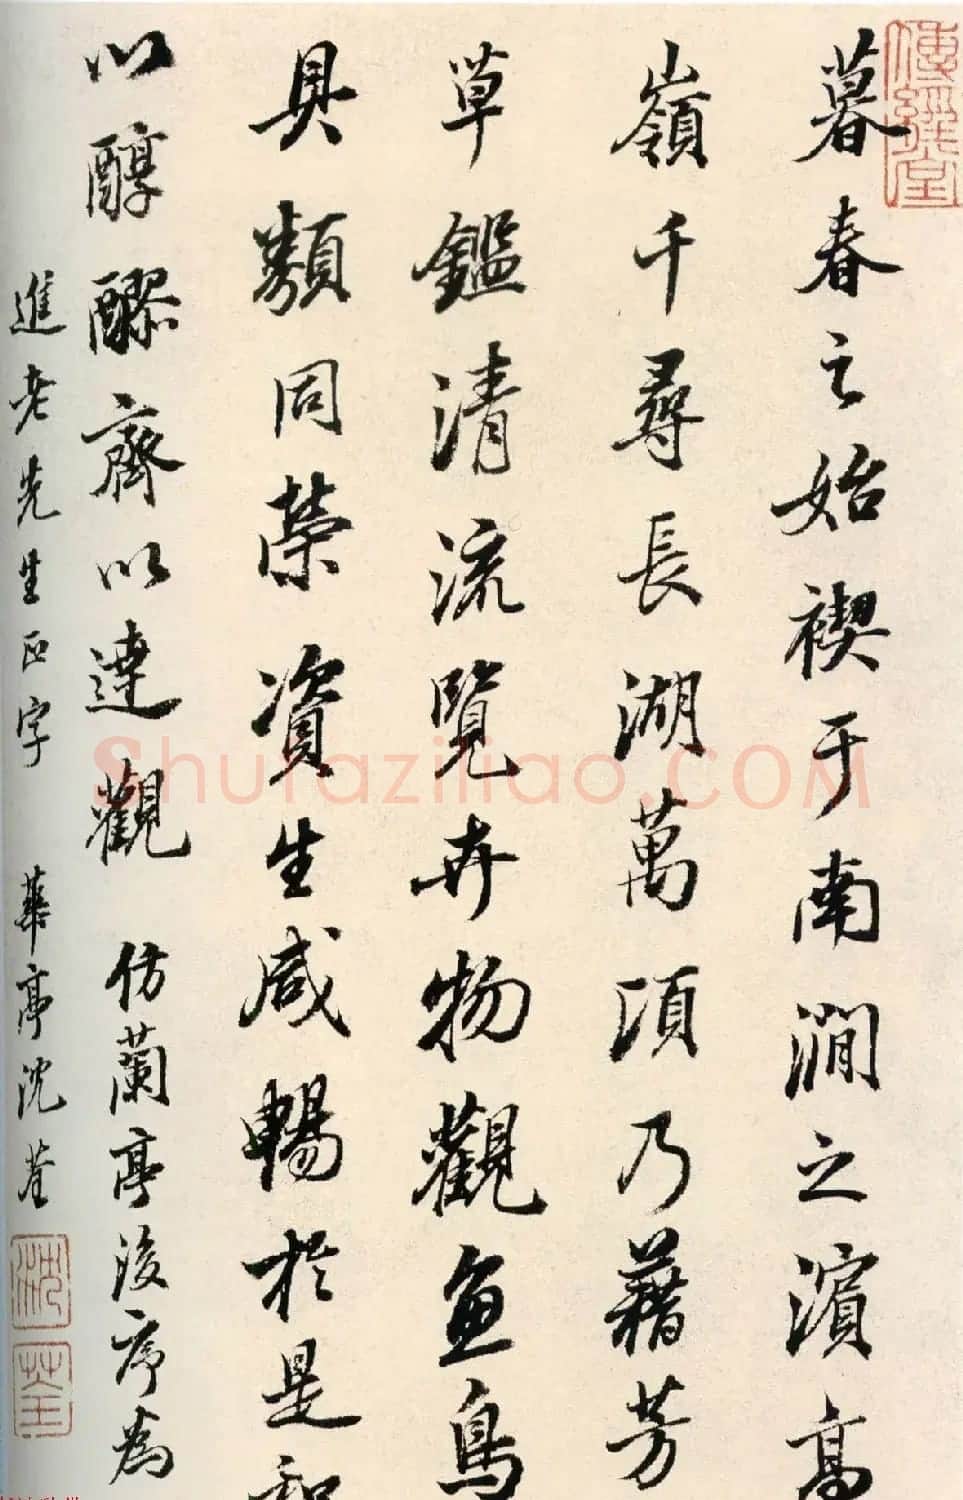 傳經堂
暮春之始禊于南澗之濱高
嶺千尋長湖萬頃乃藉芳
草鑑清流覽卉物觀魚鳥
具類同榮資生咸暢於是和
以醇醪齊以達觀 仿蘭亭後序為
進老先生正字 華亭沈荃
沈荃
Shufaziliao.COM